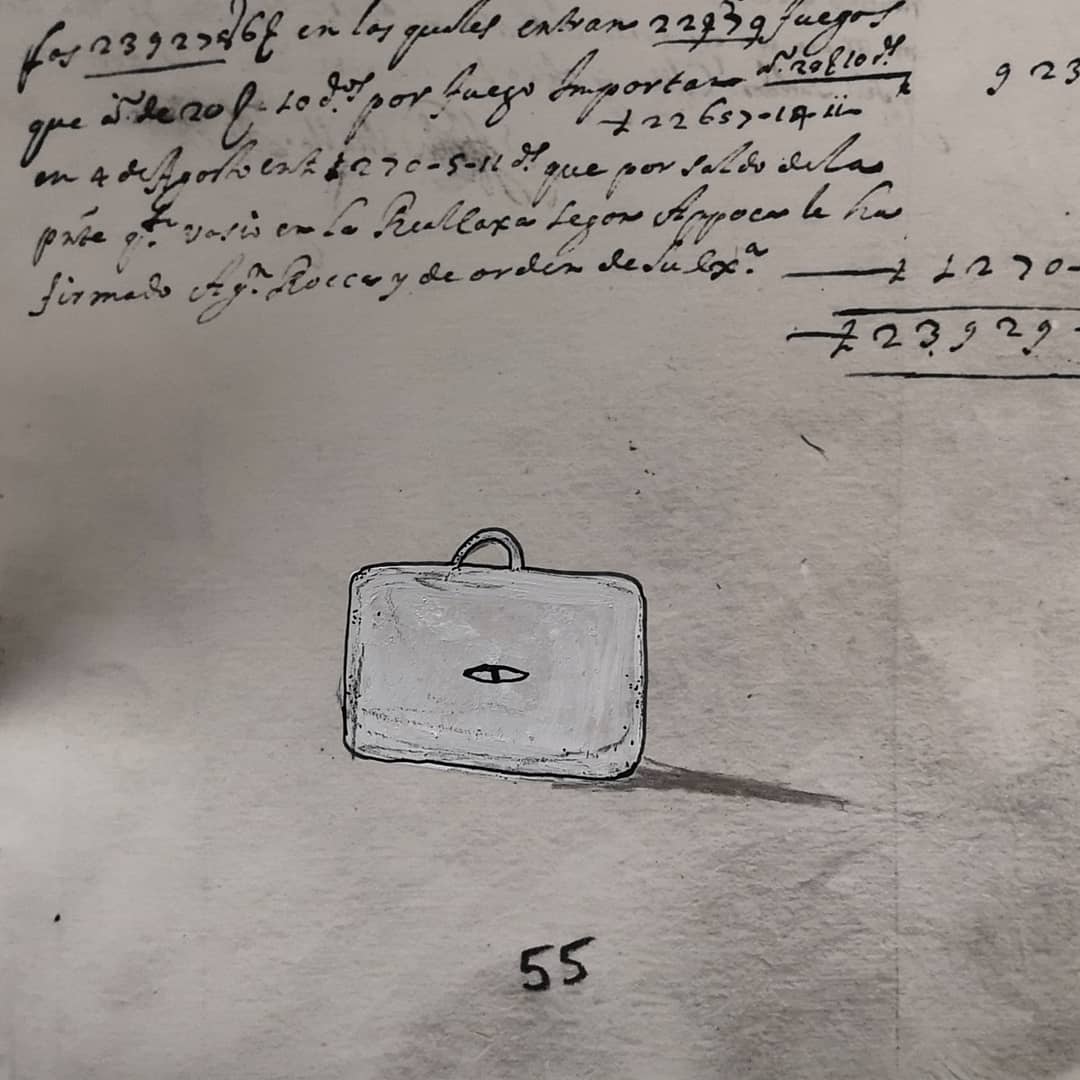 los 23927 en los quales entran 22879 fuegos 923
que de 20 10 d.os por fuego Importan
22657-18-11
en 4 de Agosto 1270-5-11 d.s que por saldo dela
pnte q.ta vasio en la Reallcaxa segon Appoca le ha
firmado Ag.n Rocca y de orden de su Ex.a 1270
23,929
55